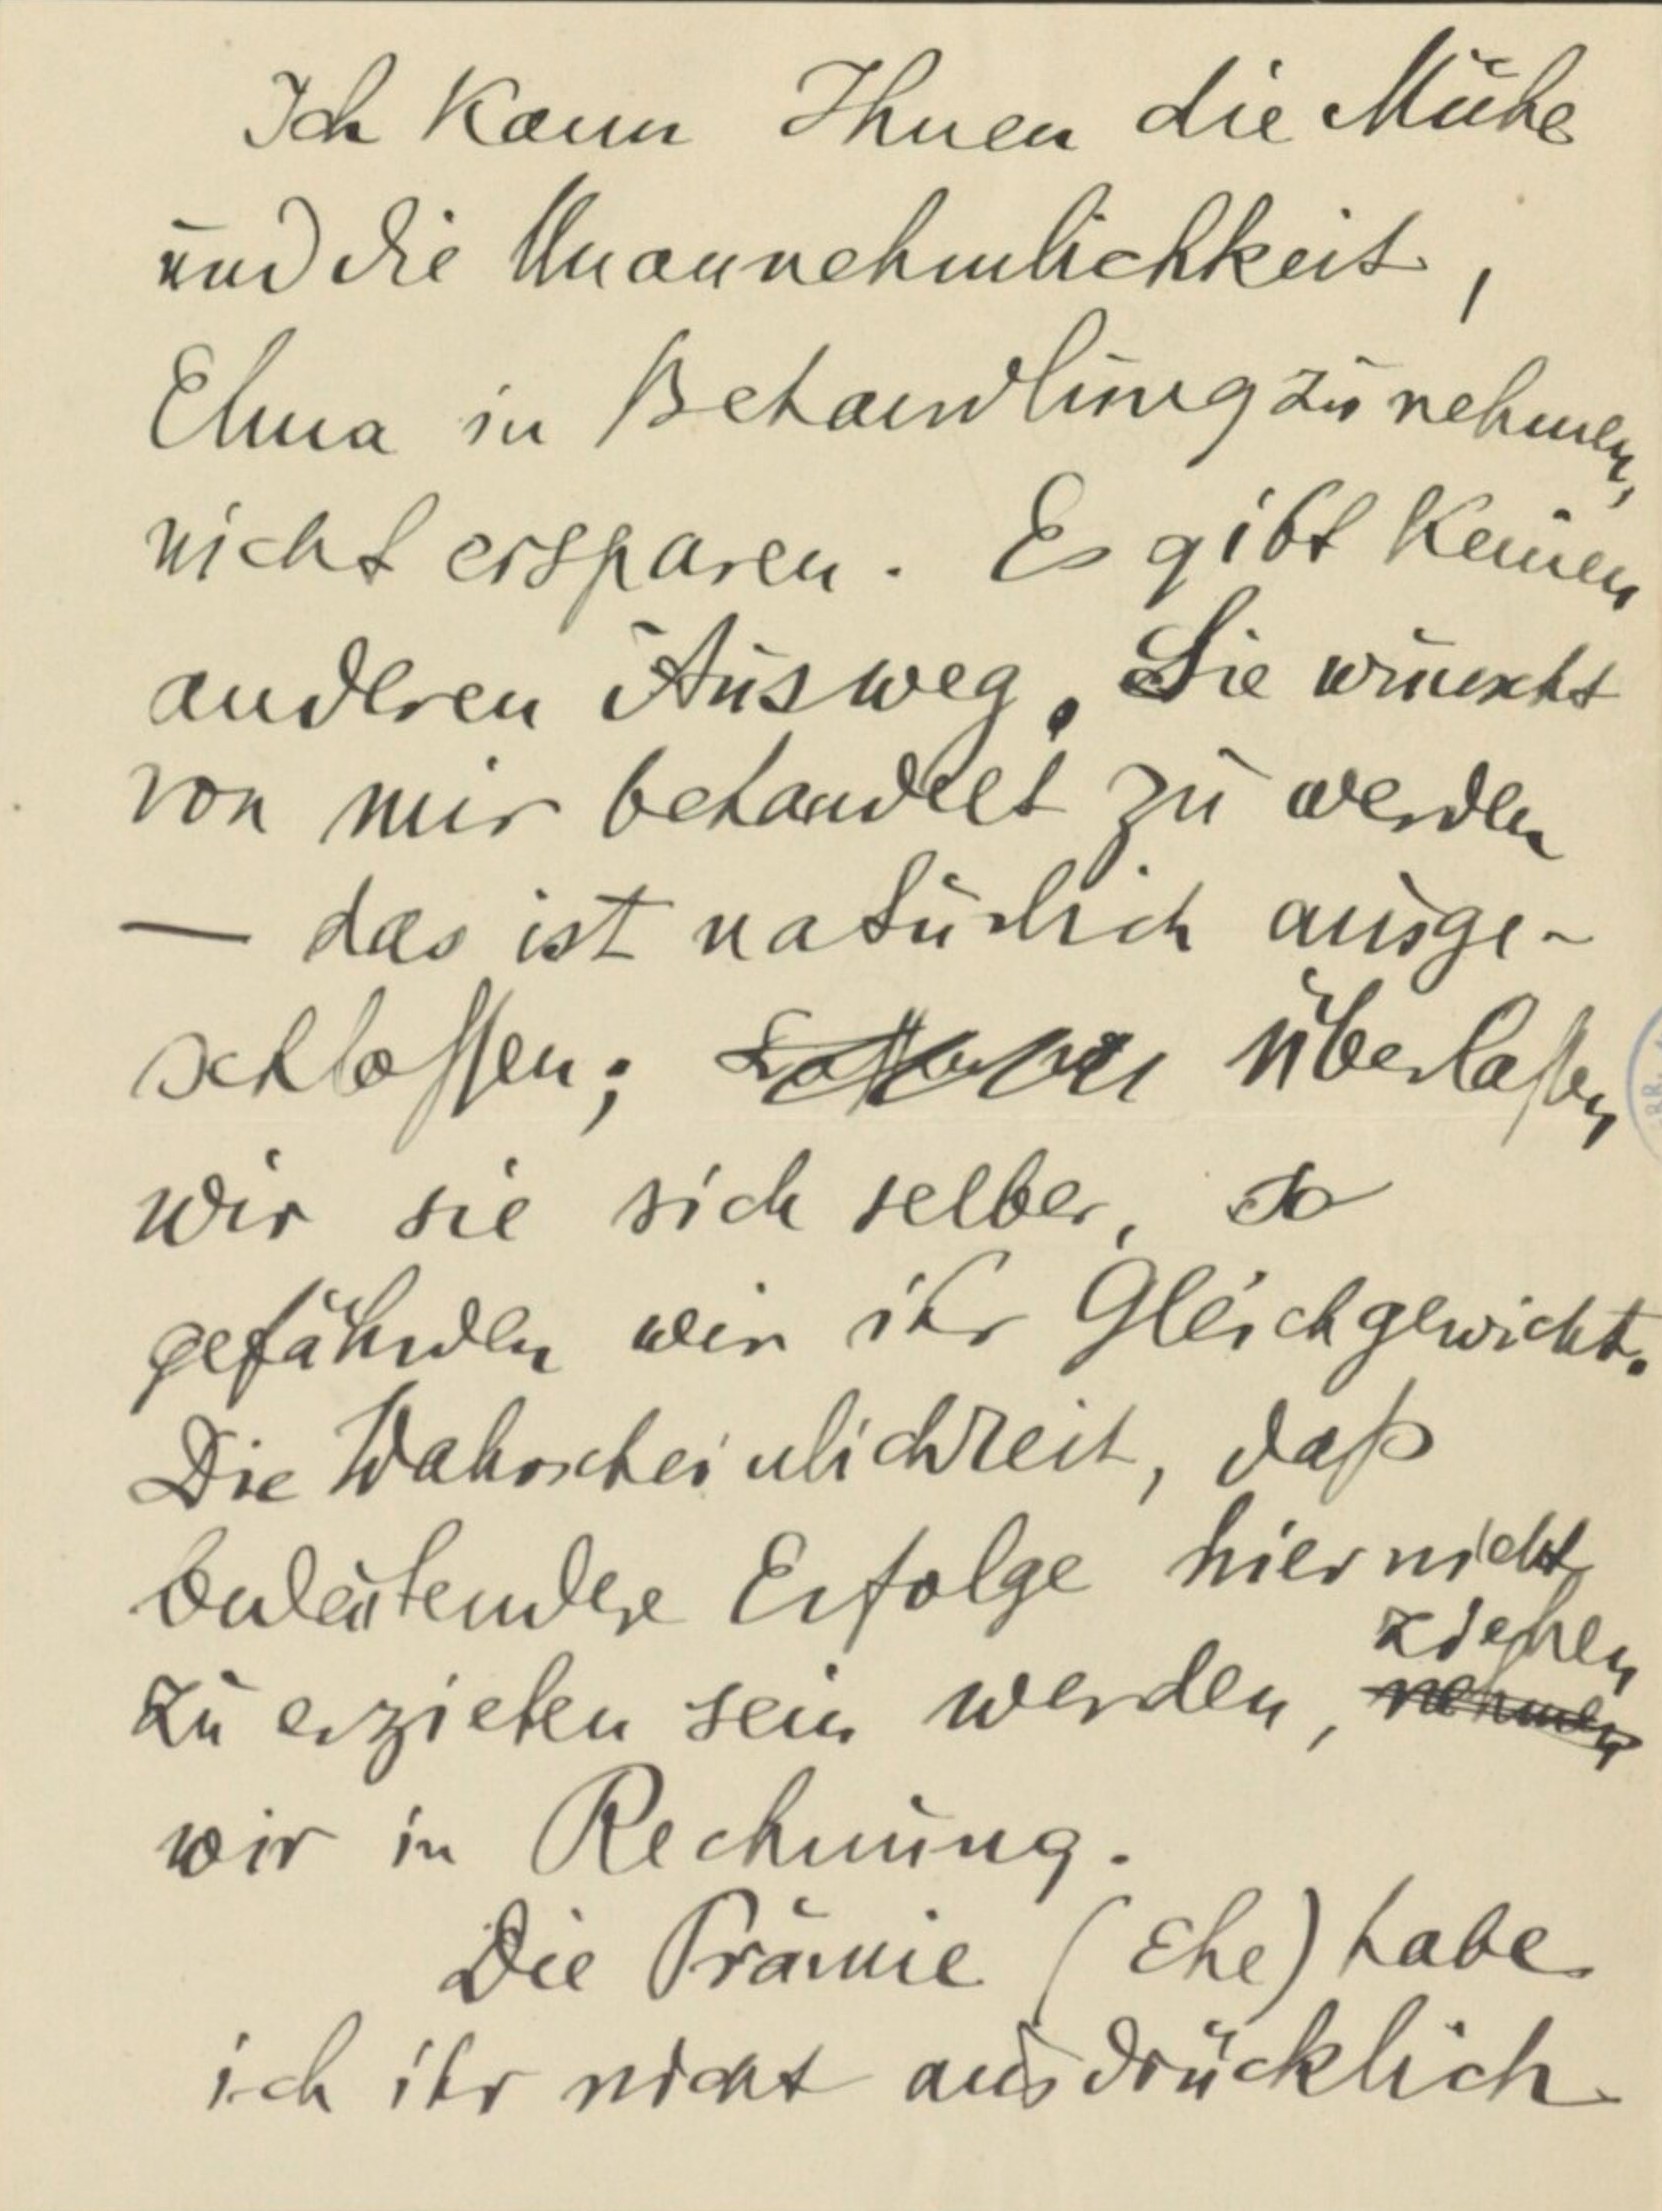 Ich kann Ihnen die Mühe
und die Unannehmlichkeit,
Elma in Behandlung zu nehmen,
nicht ersparen. Es gibt keinen
anderen Ausweg. Sie wünscht
von mir behandelt zu werden
— das ist natürlich ausge-
schlossen; überlassen
wir sie sich selber, so
gefährden wir ihr Gleichgewicht.
Die Wahrscheinlichkeit, daß
bedeutendere Erfolge hier nicht
ziehen
zu erzielen sein werden, nehmen
wir in Rechnung.
Die Prämie (Ehe) habe
ich ihr nicht ausdrücklich